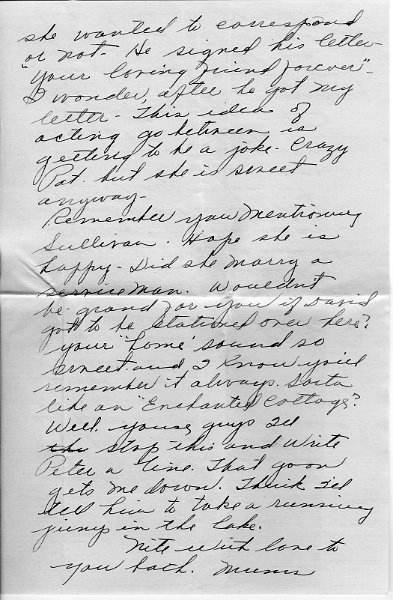 she wanted to correspond
or not. He signed his letter
"your loving friend forever".
I wonder, after he got my
letter. This idea of
acting go between is
getting to be a joke. Crazy
Pat. but she is sweet
anyway.
Remember you mentioning
Sullivan. Hope she is
happy. Did she marry a
service man. Wouldn't
be grand for you if David
got to be stationed over here?
your "home" sound so
sweet and I know you'll
remember it always. Sorta
like an "Enchanted Cottage"?
Well young guys I'll
stop this and write
Peter a line. That goon
gets me down. Think I'll
tell him to take a running
jump in the lake.
Nite with love to
you both. Mums